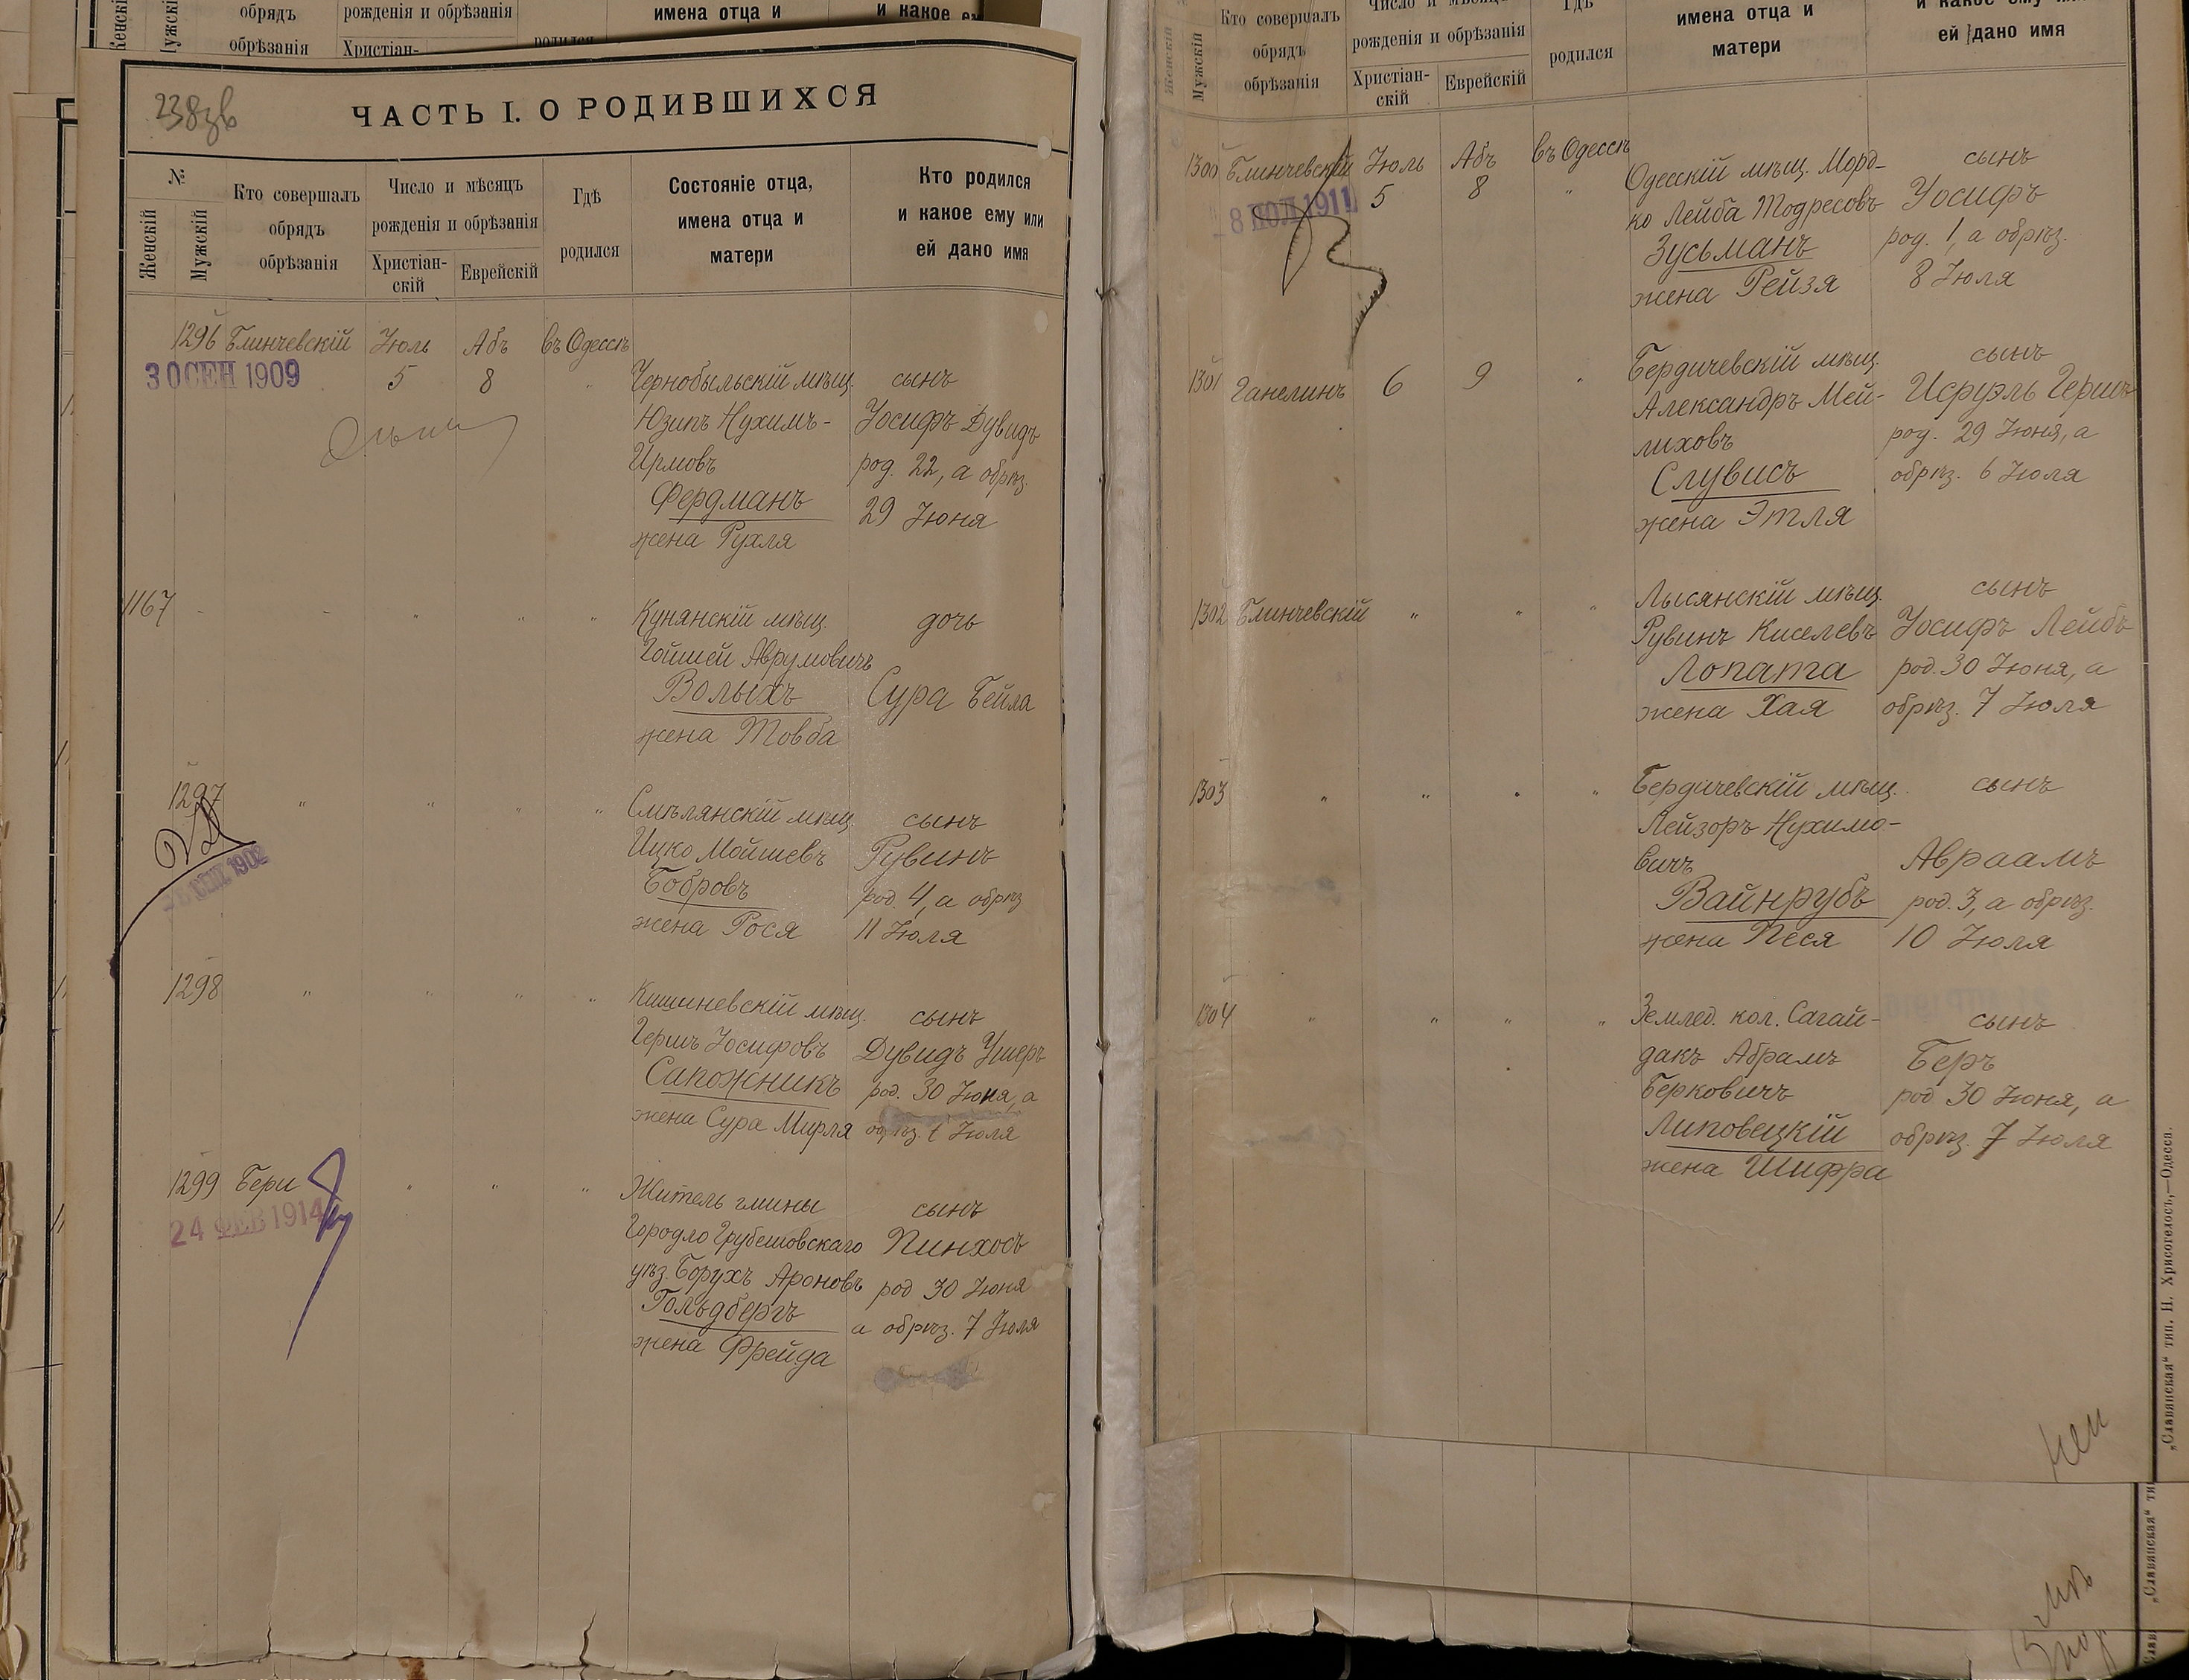 обрядъ
обрѣзанія
рожденія и обрѣзанія
Христіан-
родился
имена отца и
и какое ему
238зв
ЧАСТЬ I. О РОДИВШИХСЯ
№
Женскій
Мужскій
Кто совершалъ
обрядъ
обрѣзанія
Число и мѣсяцъ
рожденія и обрѣзанія
Христіан-
скій
Еврейскій
Гдѣ
родился
Состояніе отца,
имена отца и
матери
Кто родился
и какое ему или
ей дано имя
1296 Блинчевскій Іюль Абъ въ Одессѣ
30 СЕН 1909
5 8 "
Чернобыльскій мѣщ.
Юзипъ Нухимъ-
Ирмовъ
Фердманъ
жена Рухля
сынъ
Іосифъ Дувидъ
род. 22, а обрѣз.
29 Іюня
1167 - - " " "
Кунянскій мѣщ.
Гойшей Аврумовичъ
Волыхъ
жена Товба
дочь
Сура Бейла
1297 " " " "
СЕН 1902
Смѣлянскій мѣщ.
Ицко Мойшевъ
Бобровъ
жена Рося
сынъ
Рувинъ
род. 4, а обрѣз
11 Іюля
1298 " " " "
Кишиневскій мѣщ.
Гершъ Іосифовъ
Сапожникъ
жена Сура Мирля
сынъ
Дувидъ Ушеръ
род. 30 Іюня, а
обрѣз. Іюля
1299 Бери " " "
24 ФЕВ 1914
Житель гмины
Городло Грубешовскаго
уѣз. Борухъ Ароновъ
Гольдбергъ
жена Фрейда
сынъ
Пинхосъ
род 30 Іюня
а обрѣз. 7 Іюля
Женскій
Мужскій
Кто совершалъ
обрядъ
обрѣзанія
Число и мѣсяцъ
рожденія и обрѣзанія
Христіан-
скій
Еврейскій
Гдѣ
родился
имена отца и
матери
и какое ему или
ей дано имя
1300 Блинчевскій Іюль Абъ въ Одессѣ
8 1911
5 8 "
Одесскій мѣщ. Морд-
ко Лейба Тодресовъ
Зусьманъ
жена Рейзя
сынъ
Іосифъ
род. 1, а обрѣз.
8 Іюля
1301 Ганелинъ 6 9 "
Бердичевскій мѣщ.
Александръ Мей-
лиховъ
Слувисъ
жена Этля
сынъ
Исруэль Гершъ
род. 29 Іюня, а
обрѣз. 6 Іюля
1302 Блинчевскій " " "
Лысянскій мѣщ.
Рувинъ Киселевъ
Лопата
жена Хая
сынъ
Іосифъ Лейбъ
род. 30 Іюня, а
обрѣз. 7 Іюля
1303 " " " "
Бердичевскій мѣщ.
Лейзоръ Нухимо-
вичъ
Вайнрубъ
жена Песя
сынъ
Авраамъ
род. 3, а обрѣз.
10 Іюля
1304 " " " "
Землед. кол. Сагай-
дакъ Абрамъ
Берковичъ
Липовецкій
жена Шифра
сынъ
Беръ
род 30 Іюня, а
обрѣз. 7 Іюля
„Славянская“ тип. Н. Хрисогелосъ,—Одесса.
„Славянская“ ти